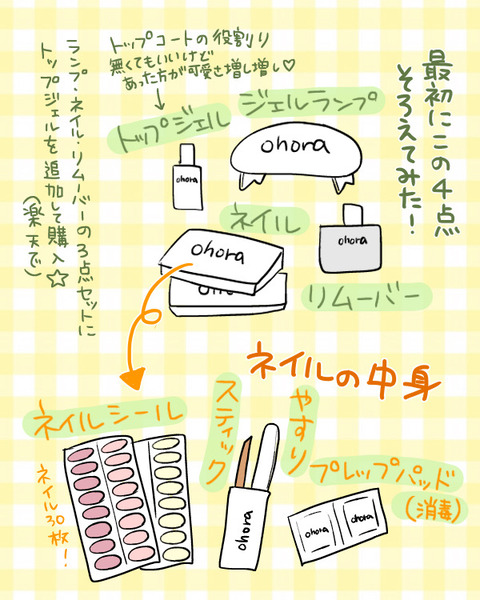 最初にこの4点
そろえてみた!
トップコートの役割り
無くてもいいけど
あった方が可愛さ増し増し♡
ランプ・ネイル・リムーバーの3点セットに
トップジェルを追加して購入☆
(楽天で)
トップジェル
ジェルランプ
ohora
ohora
ネイル
ohora
ohora
リムーバー
ネイルの中身
ネイルシール
ネイル30枚!
スティック
やすり
ohora
プレップパッド
(消毒)
ohora
ohora